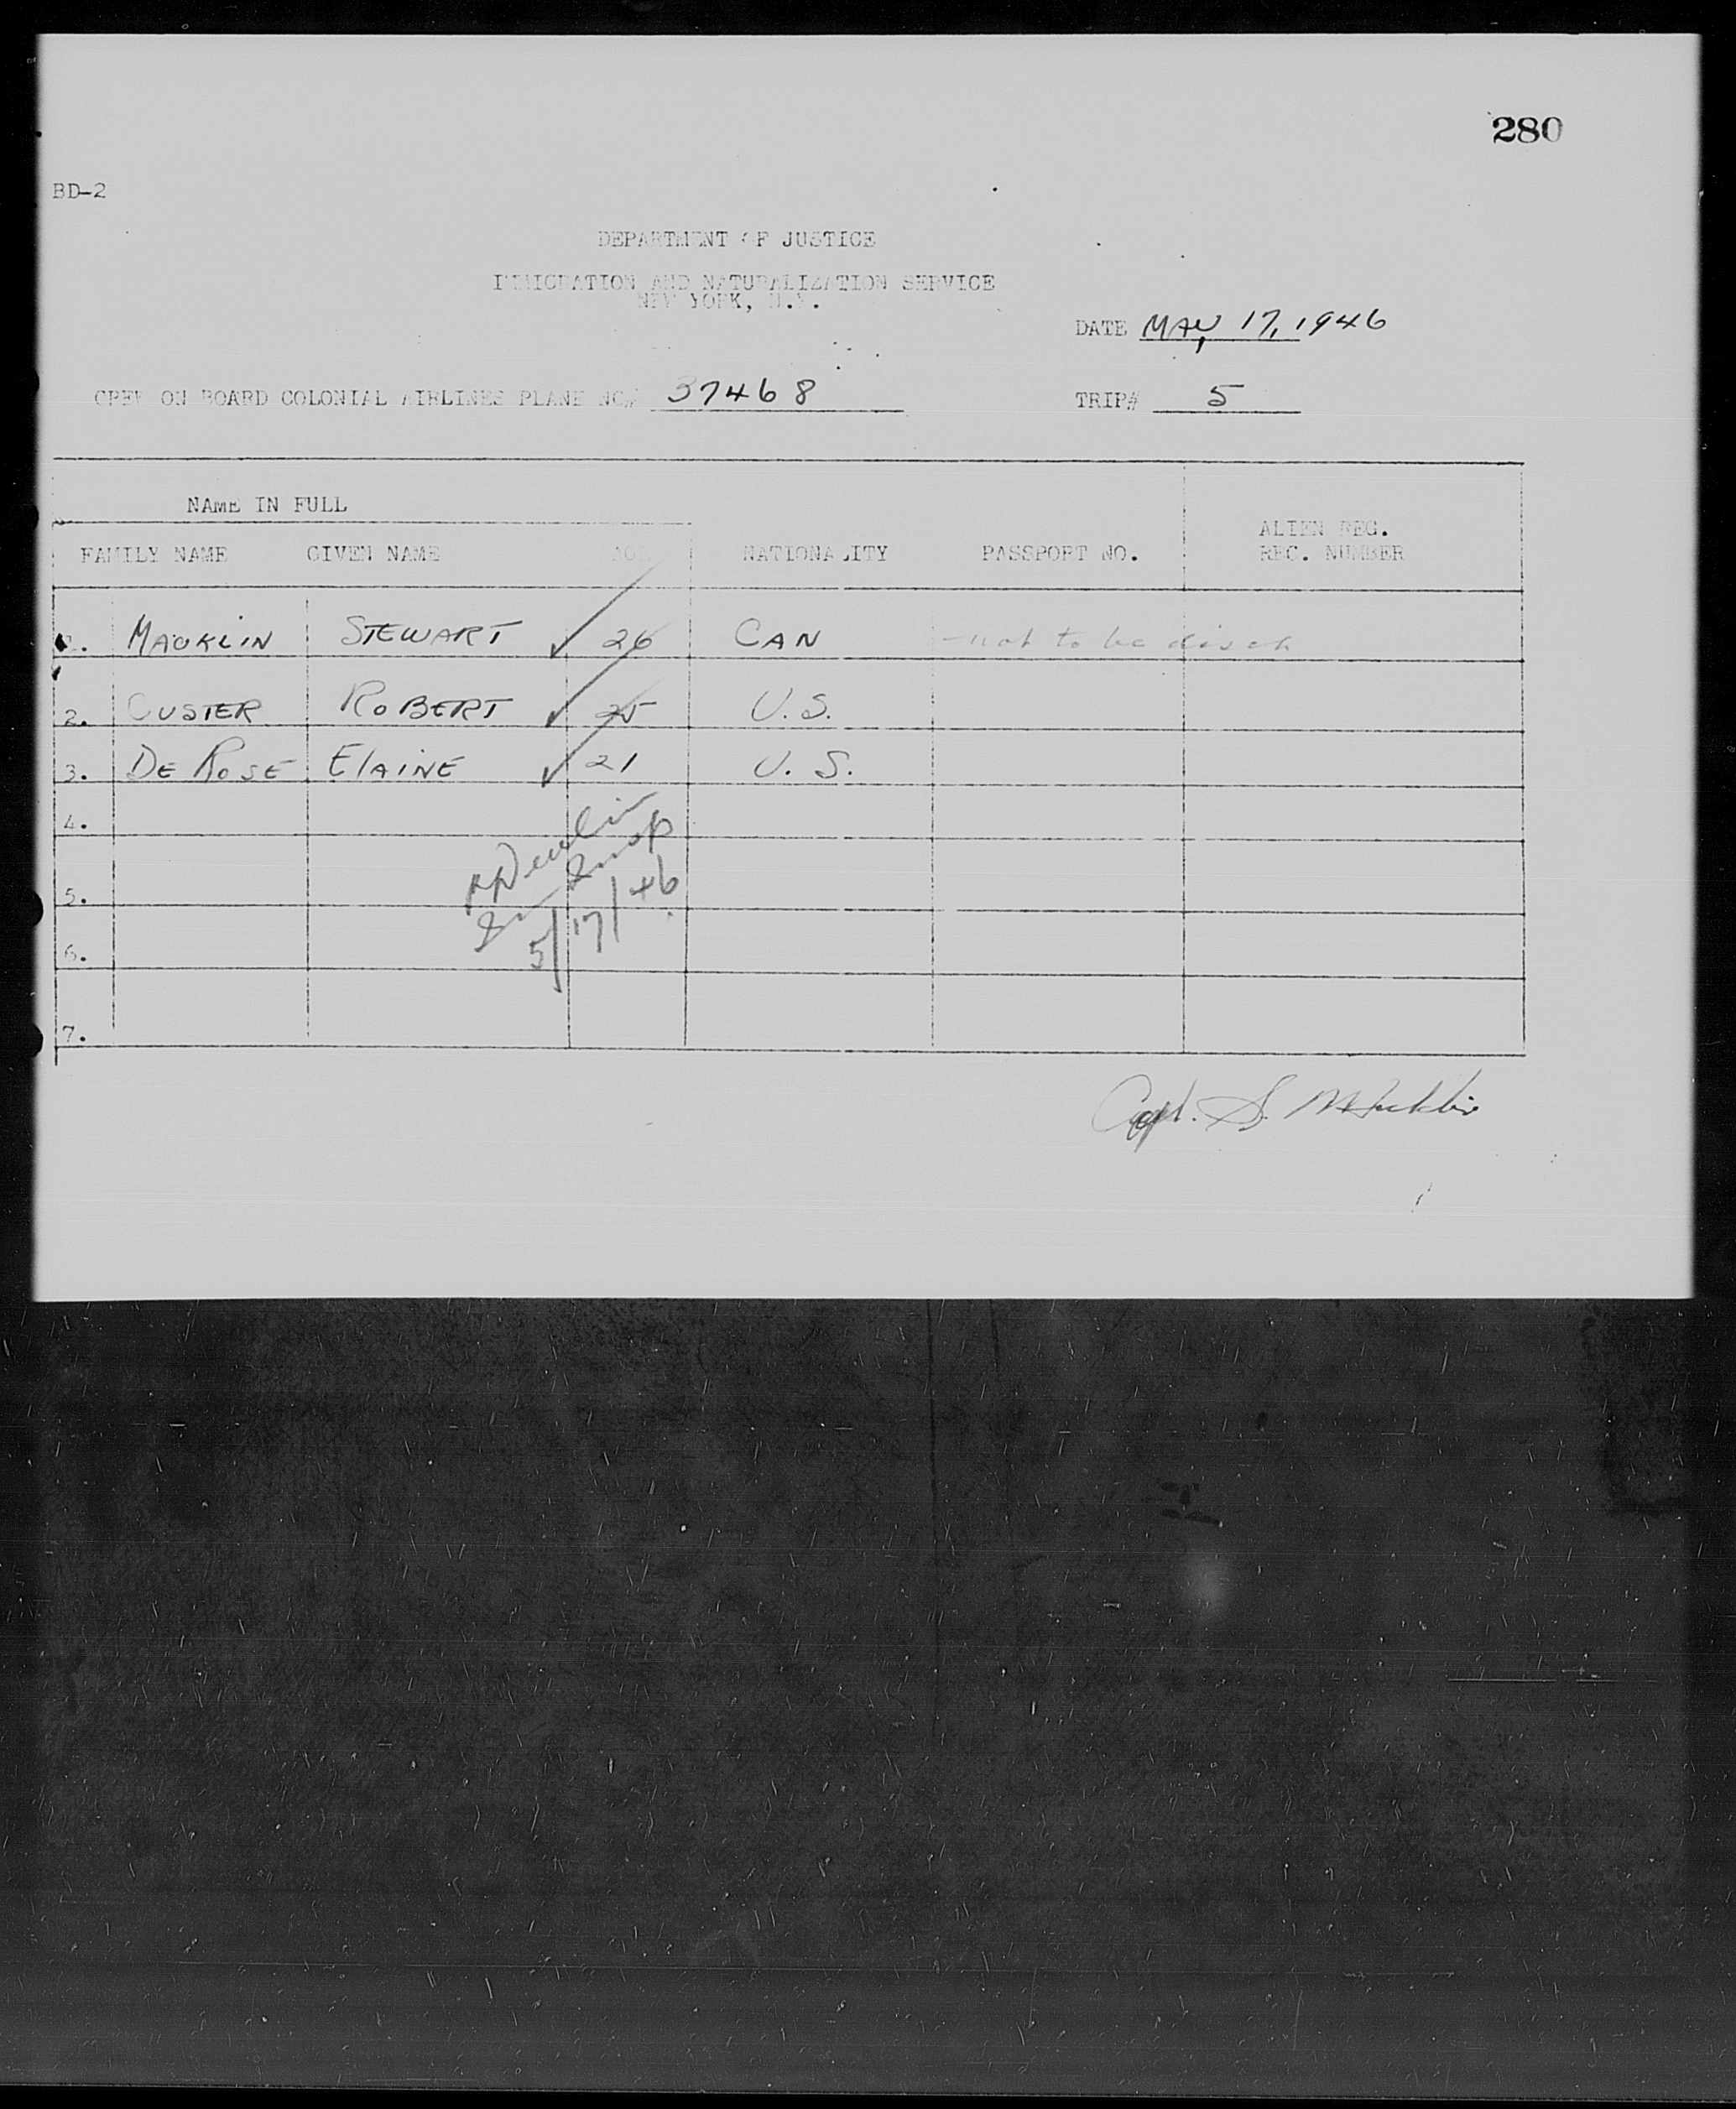 280
BD-2
DEPARTMENT OF JUSTICE
IMMIGRATION AND NATURALIZATION SERVICE
NEW YORK, N.Y.
DATE MAY 17, 1946
CREW ON BOARD COLONIAL AIRLINES PLANE NC# 37468 TRIP# 5
NAME IN FULL
ALIEN REG.
FAMILY NAME GIVEN NAME AGE NATIONALITY PASSPORT NO. REC. NUMBER
1. MACKLIN STEWART ✓ 26 CAN - not to be disch
2. CUSTER ROBERT ✓ 25 U.S.
3. DE ROSE ELAINE ✓ 21 U.S.
4.
5.
6.
5/17/46
7.
Capt. S. Macklin